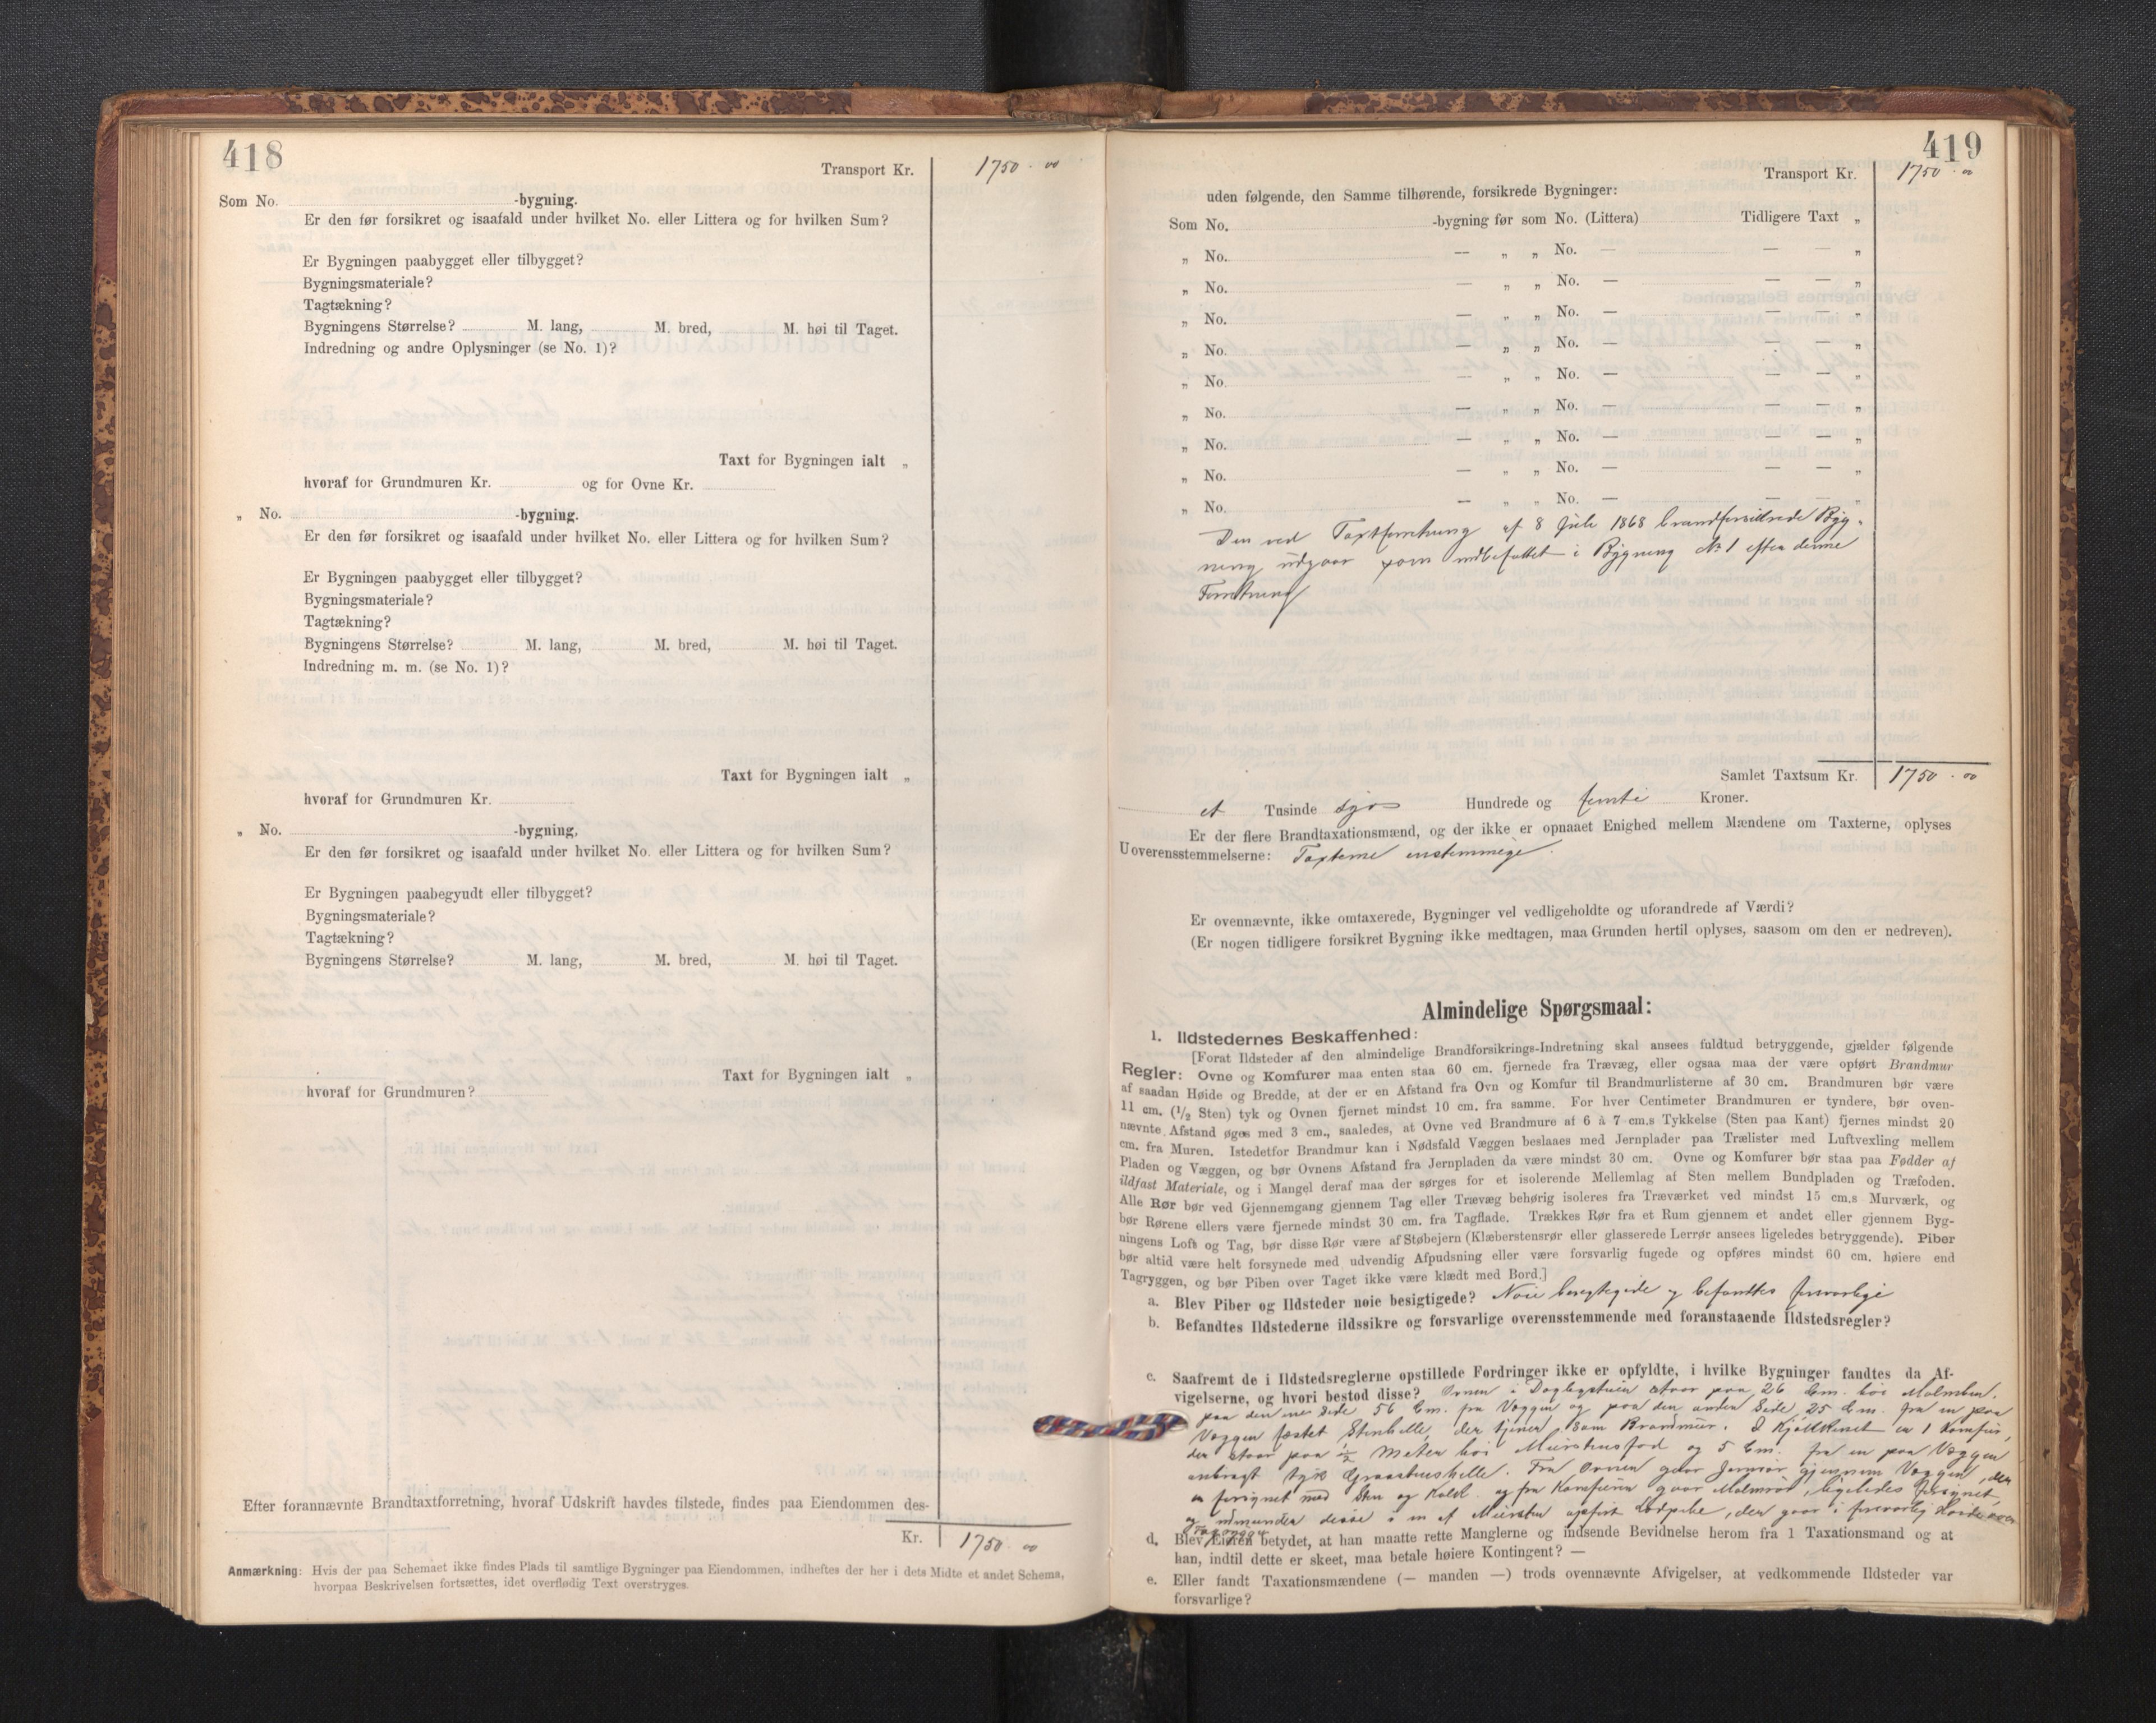 418
Transport Kr. 1750.00
Som No. -bygning.
Er den før forsikret og isaafald under hvilket No. eller Littera og for hvilken Sum?
Er Bygningen paabygget eller tilbygget?
Bygningsmateriale?
Tagtækning?
Bygningens Størrelse? M. lang, M. bred, M. høi til Taget.
Indredning og andre Oplysninger (se No. 1)?
Taxt for Bygningen ialt „
hvoraf for Grundmuren Kr. og for Ovne Kr.
„ No. -bygning.
Er den før forsikret og isaafald under hvilket No. eller Littera og for hvilken Sum?
Er Bygningen paabygget eller tilbygget?
Bygningsmateriale?
Tagtækning?
Bygningens Størrelse? M. lang, M. bred, M. høi til Taget.
Indredning m. m. (se No. 1)?
Taxt for Bygningen ialt „
hvoraf for Grundmuren Kr.
„ No. -bygning,
Er den før forsikret og isaafald under hvilket No. eller Littera og for hvilken Sum?
Er Bygningen paabegyudt eller tilbygget?
Bygningsmateriale?
Tagtækning?
Bygningens Størrelse? M. lang, M. bred, M. høi til Taget.
Taxt for Bygningen ialt „
hvoraf for Grundmuren?
Efter forannævnte Brandtaxtforretning, hvoraf Udskrift havdes tilstede, findes paa Eiendommen des-
Kr. 1750.00
Anmærkning: Hvis der paa Schemaet ikke findes Plads til samtlige Bygninger paa Eiendommen, indheftes der her i dets Midte et andet Schema,
hvorpaa Beskrivelsen fortsættes, idet overflødig Text overstryges.
419
Transport Kr. 1750.00
uden følgende, den Samme tilhørende, forsikrede Bygninger:
Som No. -bygning før som No. (Littera) Tidligere Taxt „
„ No. — „ „ No. — — — „
„ No. — „ „ No. — — — „
„ No. — „ „ No. — — — „
„ No. — „ „ No. — — — „
„ No. — „ „ No. — — — „
„ No. — „ „ No. — — — „
„ No. — „ „ No. — — — „
„ No. — „ „ No. — — — „
„ No. — „ „ No. — — — „
Den ved Taxtforretning af 8 Juli 1868 brandforsikrede Byg-
ning udgaar som indbefattet i Bygning No 1 efter denne
Forretning
Samlet Taxtsum Kr. 1750.00
et Tusinde syv Hundrede og femti Kroner.
Er der flere Brandtaxationsmænd, og der ikke er opnaaet Enighed mellem Mændene om Taxterne, oplyses
Uoverensstemmelserne: Taxterne enstemmige.
Er ovennævnte, ikke omtaxerede, Bygninger vel vedligeholdte og uforandrede af Værdi?
(Er nogen tidligere forsikret Bygning ikke medtagen, maa Grunden hertil oplyses, saasom om den er nedreven).
Almindelige Spørgsmaal:
1. Ildstedernes Beskaffenhed:
[Forat Ildsteder af den almindelige Brandforsikrings-Indretning skal ansees fuldtud betryggende, gjælder følgende
Regler: Ovne og Komfurer maa enten staa 60 cm. fjernede fra Trævæg, eller ogsaa maa der være opført Brandmur
af saadan Høide og Bredde, at der er en Afstand fra Ovn og Komfur til Brandmurlisterne af 30 cm. Brandmuren bør være
11 cm. (1/2 Sten) tyk og Ovnen fjernet mindst 10 cm. fra samme. For hver Centimeter Brandmuren er tyndere, bør oven-
nævnte Afstand øges med 3 cm., saaledes, at Ovne ved Brandmure af 6 à 7 cm.s Tykkelse (Sten paa Kant) fjernes mindst 20
cm. fra Muren. Istedetfor Brandmur kan i Nødsfald Væggen beslaaes med Jernplader paa Trælister med Luftvexling mellem
Pladen og Væggen, og bør Ovnens Afstand fra Jernpladen da være mindst 30 cm. Ovne og Komfurer bør staa paa Fødder af
ildfast Materiale, og i Mangel deraf maa der sørges for et isolerende Mellemlag af Sten mellem Bundpladen og Træfoden.
Alle Rør bør ved Gjennemgang gjennem Tag eller Trævæg behørig isoleres fra Træværket ved mindst 15 cm.s Murværk, og
bør Rørene ellers være fjernede mindst 30 cm. fra Tagflade. Trækkes Rør fra et Rum gjennem et andet eller gjennem Byg-
ningens Loft og Tag, bør disse Rør være af Støbejern (Klæberstensrør eller glasserede Lerrør ansees ligeledes betryggende). Piber
bør altid være helt forsynede med udvendig Afpudsning eller være forsvarlig fugede og opføres mindst 60 cm. høiere end
Tagryggen, og bør Piben over Taget ikke være klædt med Bord.]
a. Blev Piber og Ildsteder nøie besigtigede? Nøie besigtigede og befandtes forsvarlige
b. Befandtes Ildstederne ildssikre og forsvarlige overensstemmende med foranstaaende Ildstedsregler?
c. Saafremt de i Ildstedsreglerne opstillede Fordringer ikke er opfyldte, i hvilke Bygninger fandtes da Af-
vigelserne, og hvori bestod disse? Ovnen i Dagligstuen staar paa 26 Cm. høi Malmben,
paa den ene Side 56 Cm. fra Væggen og paa den anden Side 25 Cm. fra en paa
Væggen fæstet Stenhelle, der tjener som Brandmur. I Kjøkkenet er 1 Komfur,
der staar paa 1/2 Meter høi Murstensfod og 5 Cm. fra en paa Væggen
anbragt tyk Graastenshelle. Fra Ovnen gaar Jernrør gjennem Væggen, der
er forsynet med Sten og Kalk og fra Komfuren gaar Malmrør, ligeledes forsynet,
og udmunder disse i en af Mursten opført Lodpibe, der gaar i forsvarlig Høide over
Tagryggen
d. Blev Eieren betydet, at han maatte rette Manglerne og indsende Bevidnelse herom fra 1 Taxationsmand og at
han, indtil dette er skeet, maa betale høiere Kontingent? —
e. Eller fandt Taxationsmændene (— manden —) trods ovennævnte Afvigelser, at vedkommende Ildsteder var
forsvarlige?